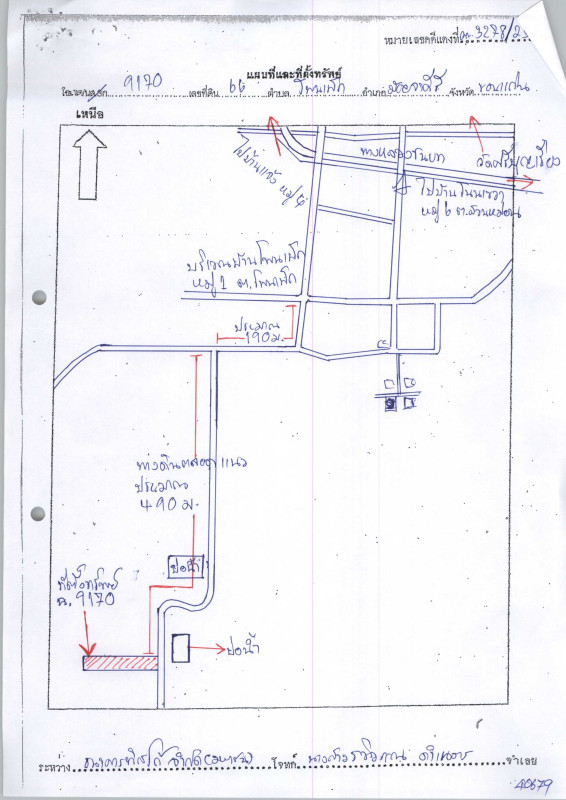 หมายเลขคดีแดงที่ ผบ. 3278/25
แผนที่และที่ตั้งทรัพย์
9170 เลขที่ดิน 66 ตำบล โพนเพ็ก อำเภอ มัญจาคีรี จังหวัด ขอนแก่น
เหนือ
ทางหลวงชนบท
ไปบ้าน หมู่ 4
ไปบ้านโนนเขวา
หมู่ 6 ต.สวนหม่อน
บริเวณบ้านโพนเพ็ก
หมู่ 1 ต.โพนเพ็ก
ประมาณ
190 ม.
ทางดินตลอดแนว
ประมาณ
490 ม.
บ่อน้ำ
ที่ตั้งทรัพย์
ฉ. 9170
บ่อน้ำ
ระหว่าง ธนาคารทิสโก้ จำกัด (มหาชน) โจทก์ นางสาว จำเลย
40679